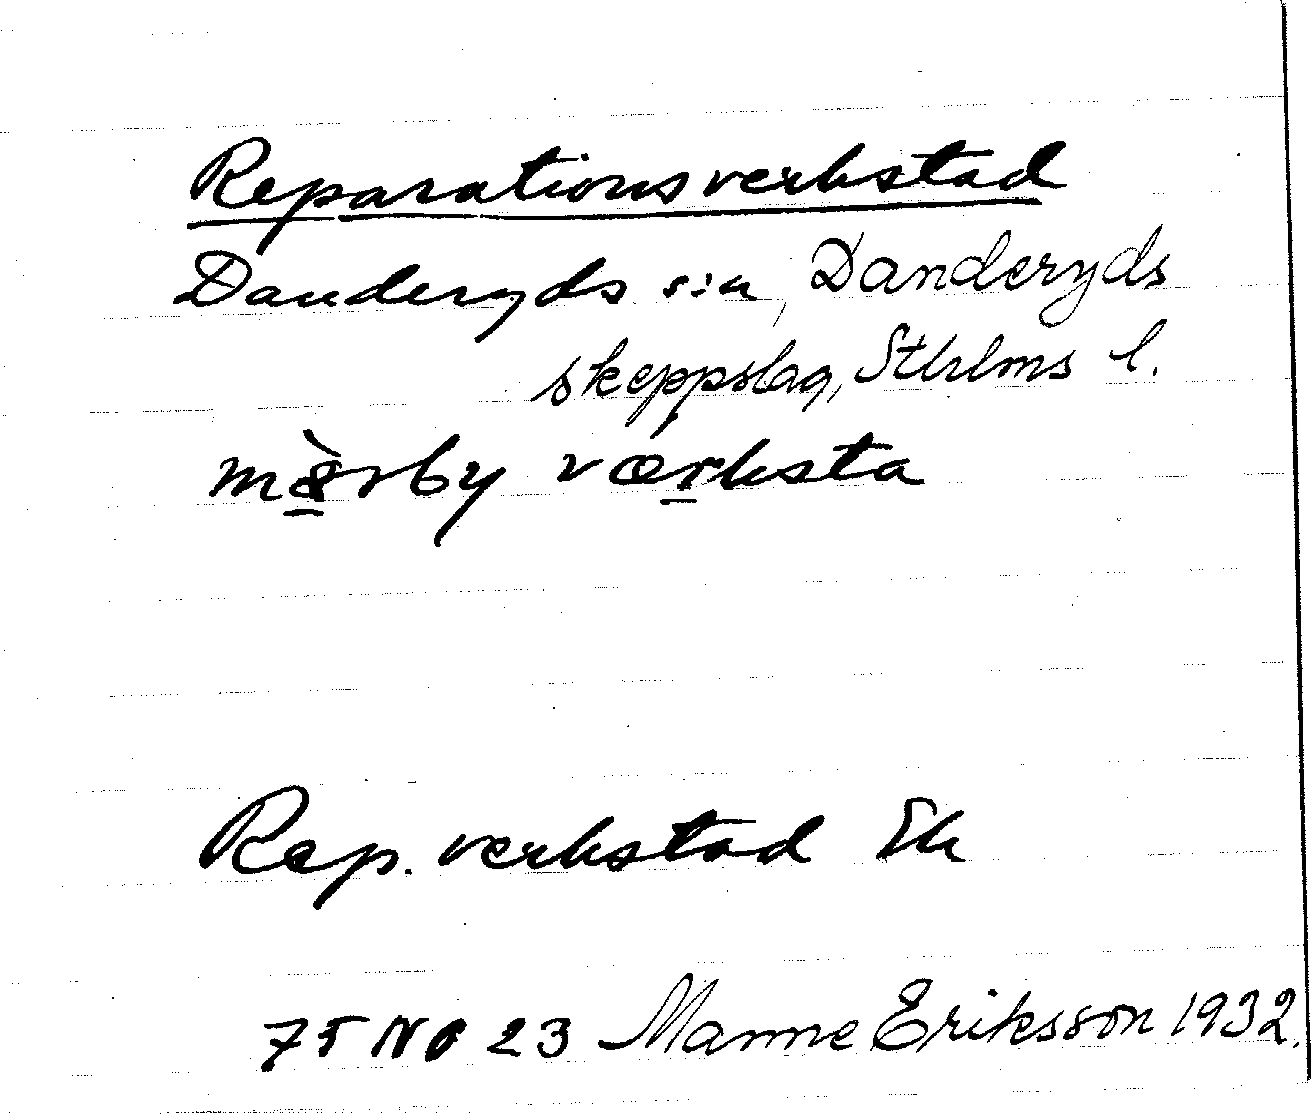 Reparationsverkstad
Danderyds sn, Danderyds
skeppslag, Sthlms l.
mörby værksta
Rep. verkstad Ek
75 No 23 Manne Eriksson 1932.